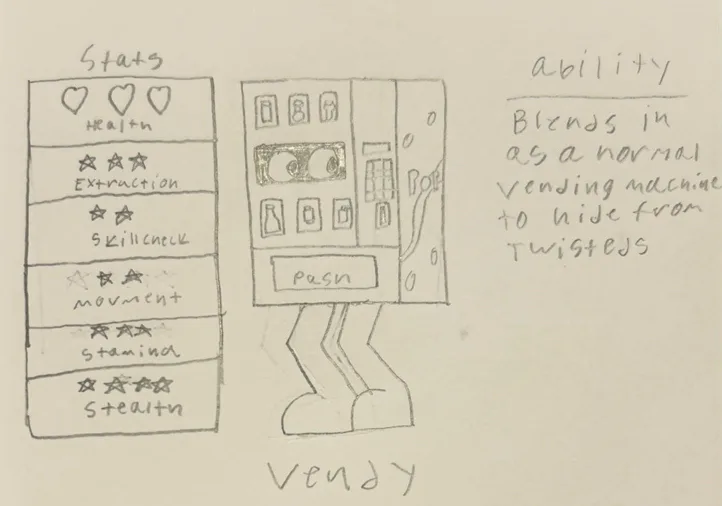 Stats
Health
Extraction
Skillcheck
Movment
Stamina
Stealth
POP
Push
Vendy
ability
Blends in
as a normal
vending machine
to hide from
Twisteds